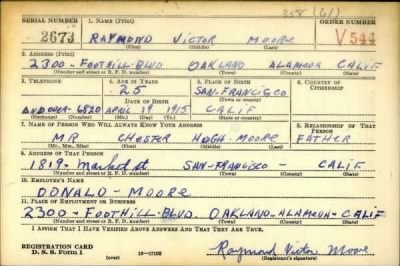 358 (61)
SERIAL NUMBER 1. NAME (Print) ORDER NUMBER
2673 RAYMOND VICTOR MOORE V544
(First) (Middle) (Last)
2. ADDRESS (Print)
2300 - FOOTHILL-BLVD OAKLAND ALAMEDA CALIF
(Number and street or R. F. D. number) (Town) (County) (State)
3. TELEPHONE 4. AGE IN YEARS 5. PLACE OF BIRTH 6. COUNTRY OF CITIZENSHIP
25 SAN-FRANCISCO
DATE OF BIRTH (Town or county)
ANDOVER-6820 APRIL 19 1915 CALIF
(Exchange) (Number) (Mo.) (Day) (Yr.) (State or country)
7. NAME OF PERSON WHO WILL ALWAYS KNOW YOUR ADDRESS 8. RELATIONSHIP OF THAT PERSON
MR CHESTER HUGH-MOORE FATHER
(Mr., Mrs., Miss) (First) (Middle) (Last)
9. ADDRESS OF THAT PERSON
1819- Market st SAN-FRANCISCO - CALIF
(Number and street or R. F. D. number) (Town) (County) (State)
10. EMPLOYER'S NAME
DONALD - MOORE
11. PLACE OF EMPLOYMENT OR BUSINESS
2300 - FOOTHILL-BLVD. OAKLAND-ALAMEDA-CALIF
(Number and street or R. F. D. number) (Town) (County) (State)
I AFFIRM THAT I HAVE VERIFIED ABOVE ANSWERS AND THAT THEY ARE TRUE.
REGISTRATION CARD
D. S. S. Form 1 (over) 16-17105 Raymond Victor Moore
(Registrant's signature)